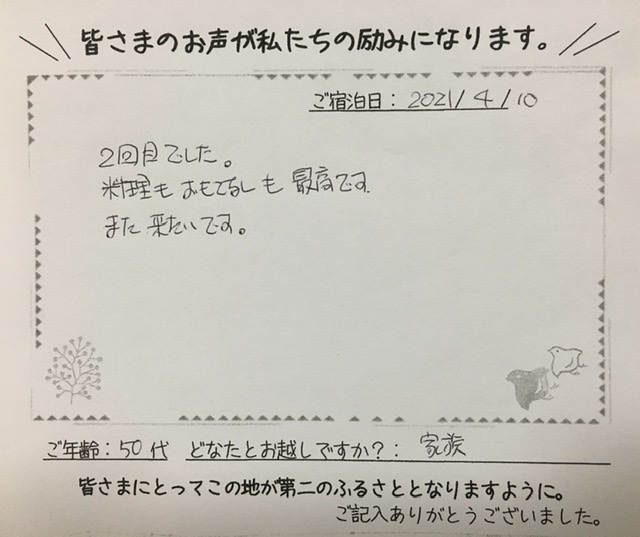 皆さまのお声が私たちの励みになります。
ご宿泊日：2021/4/10
2回目でした。
料理も おもてなしも 最高です
また 来たいです。
ご年齢：50代 どなたとお越しですか？：家族
皆さまにとってこの地が第二のふるさととなりますように。
ご記入ありがとうございました。